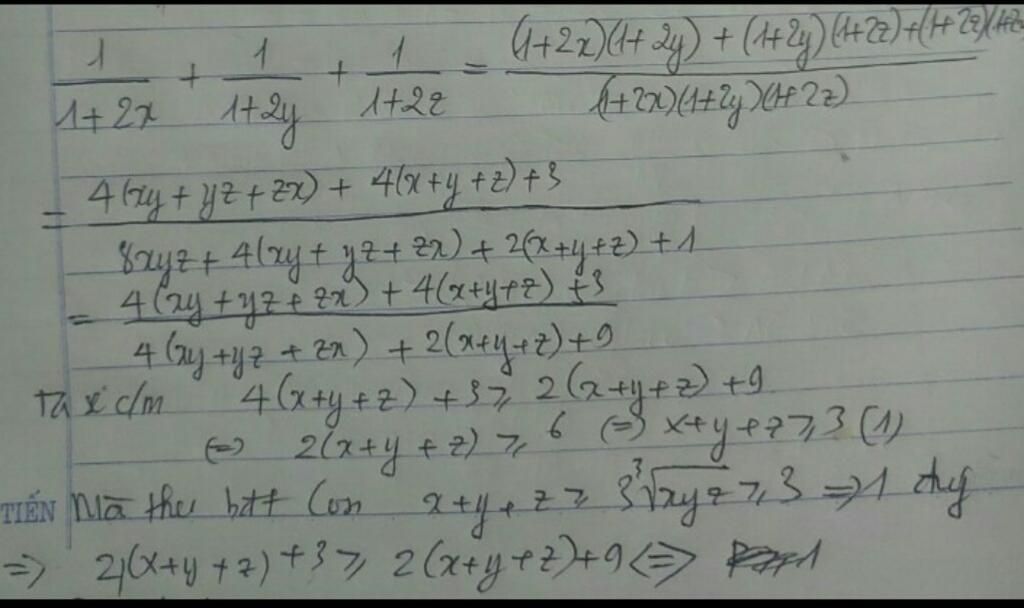 1/(1+2x) + 1/(1+2y) + 1/(1+2z) = ((1+2x)(1+2y) + (1+2y)(1+2z)+(1+2z)(1+2x)/((1+2x)(1+2y)(1+2z))
= (4(xy+yz+zx) + 4(x+y+z)+3)/(8xyz+4(xy+yz+zx)+2(x+y+z)+1)
= (4(xy+yz+zx)+4(x+y+z)+3)/(4(xy+yz+zx)+2(x+y+z)+9)
Ta c/m 4(x+y+z)+3 ≥ 2(x+y+z)+9
(=) 2(x+y+z) ≥ 6 (=) x+y+z ≥ 3 (1)
TIẾN Mà the bđt Con x+y+z ≥ 3∛xyz ≥ 3 => 1 đúg
=> 4(x+y+z)+3 ≥ 2(x+y+z)+9 <=>